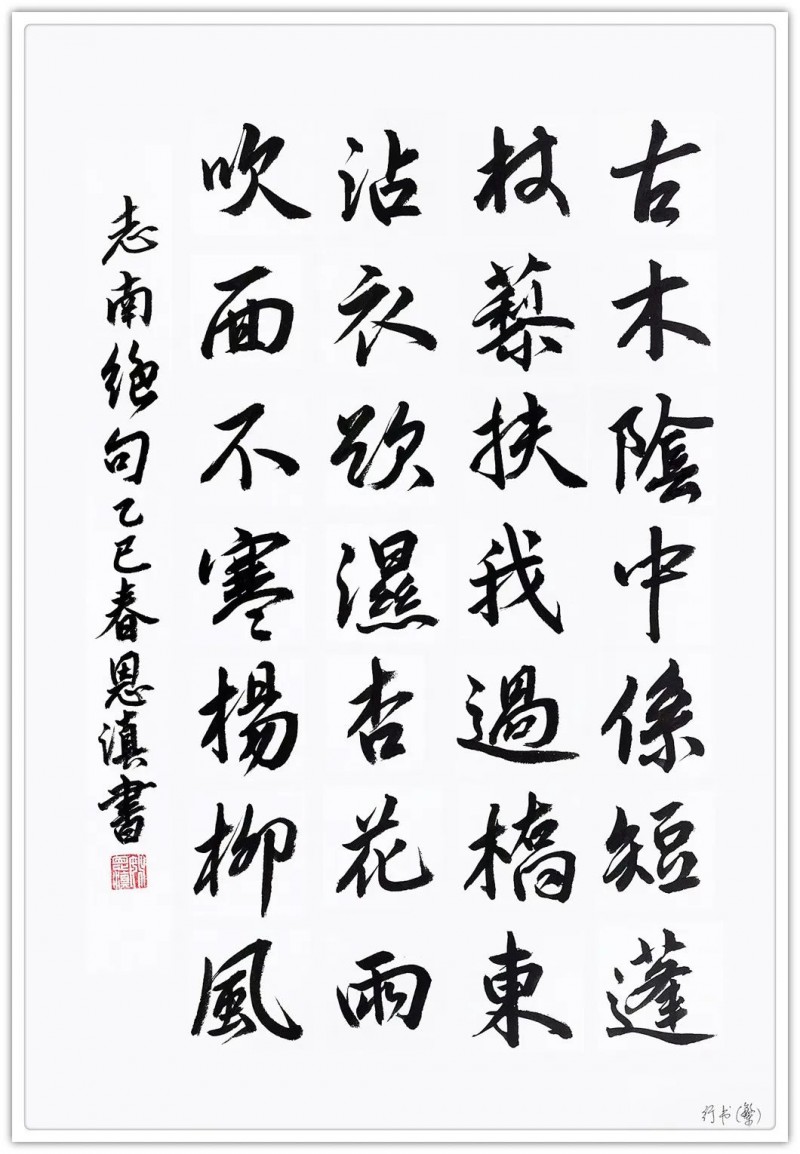 古木陰中係短蓬
杖藜扶我過橋東
沾衣欲濕杏花雨
吹面不寒楊柳風
志南絕句乙巳春恩滇書
行书(繁)